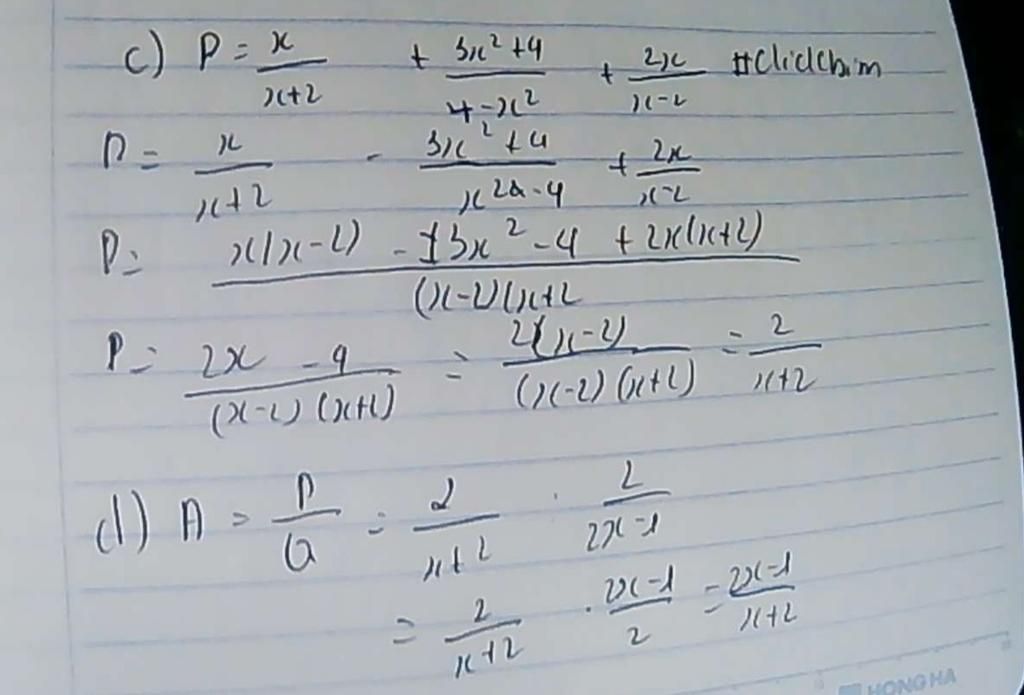 c) P = x/(x+2) + (3x² + 4)/(4 - x²) + 2x/(x-2) #ClidChim
P = x/(x+2) - (3x² + 4)/(x² - 4) + 2x/(x-2)
P = (x(x-2) - 3x² - 4 + 2x(x+2))/((x-2)(x+2
P = (2x - 4)/((x-2)(x+2)) = 2(x-2)/((x-2)(x+2)) = 2/(x+2)
d) A = P/Q = 2/(x+2) : 2/(2x-1)
= 2/(x+2) . (2x-1)/2 = (2x-1)/(x+2)
HONG HA